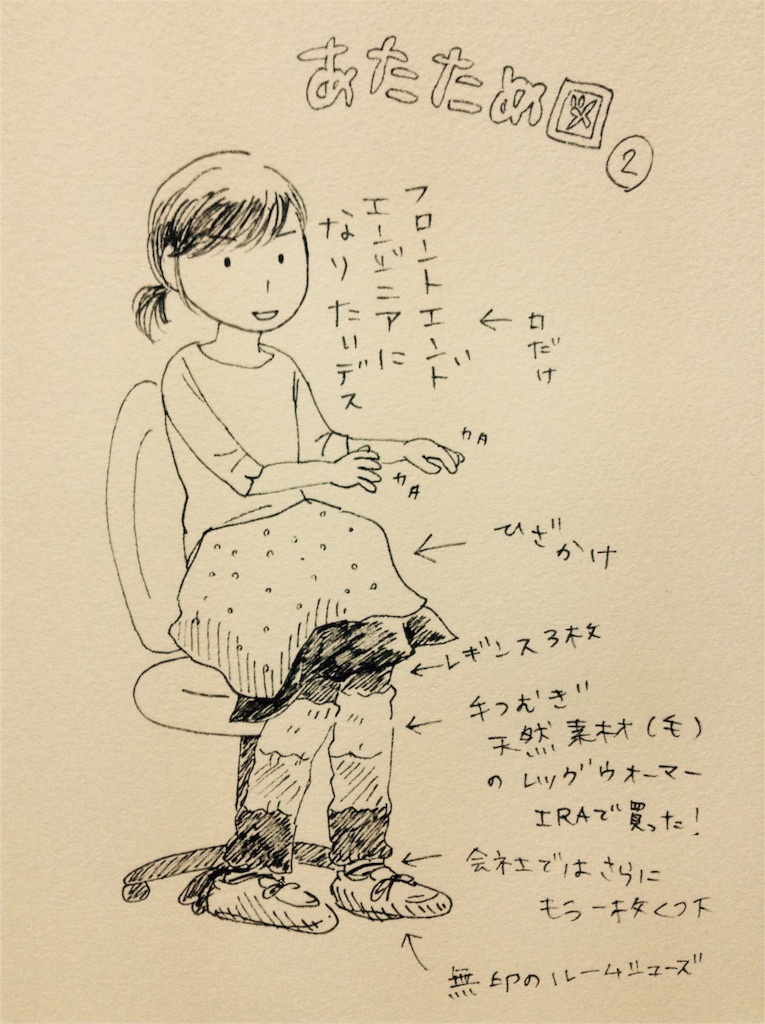 あたため図
②
フロントエンド
エンジニアに
なりたいデス
口だけ
カタ
カタ
ひざかけ
レギンス3枚
手つむぎ
天然素材(毛)
のレッグウォーマー
IRAで買った!
会社ではさらに
もう一枚くつ下
無印のルームシューズ